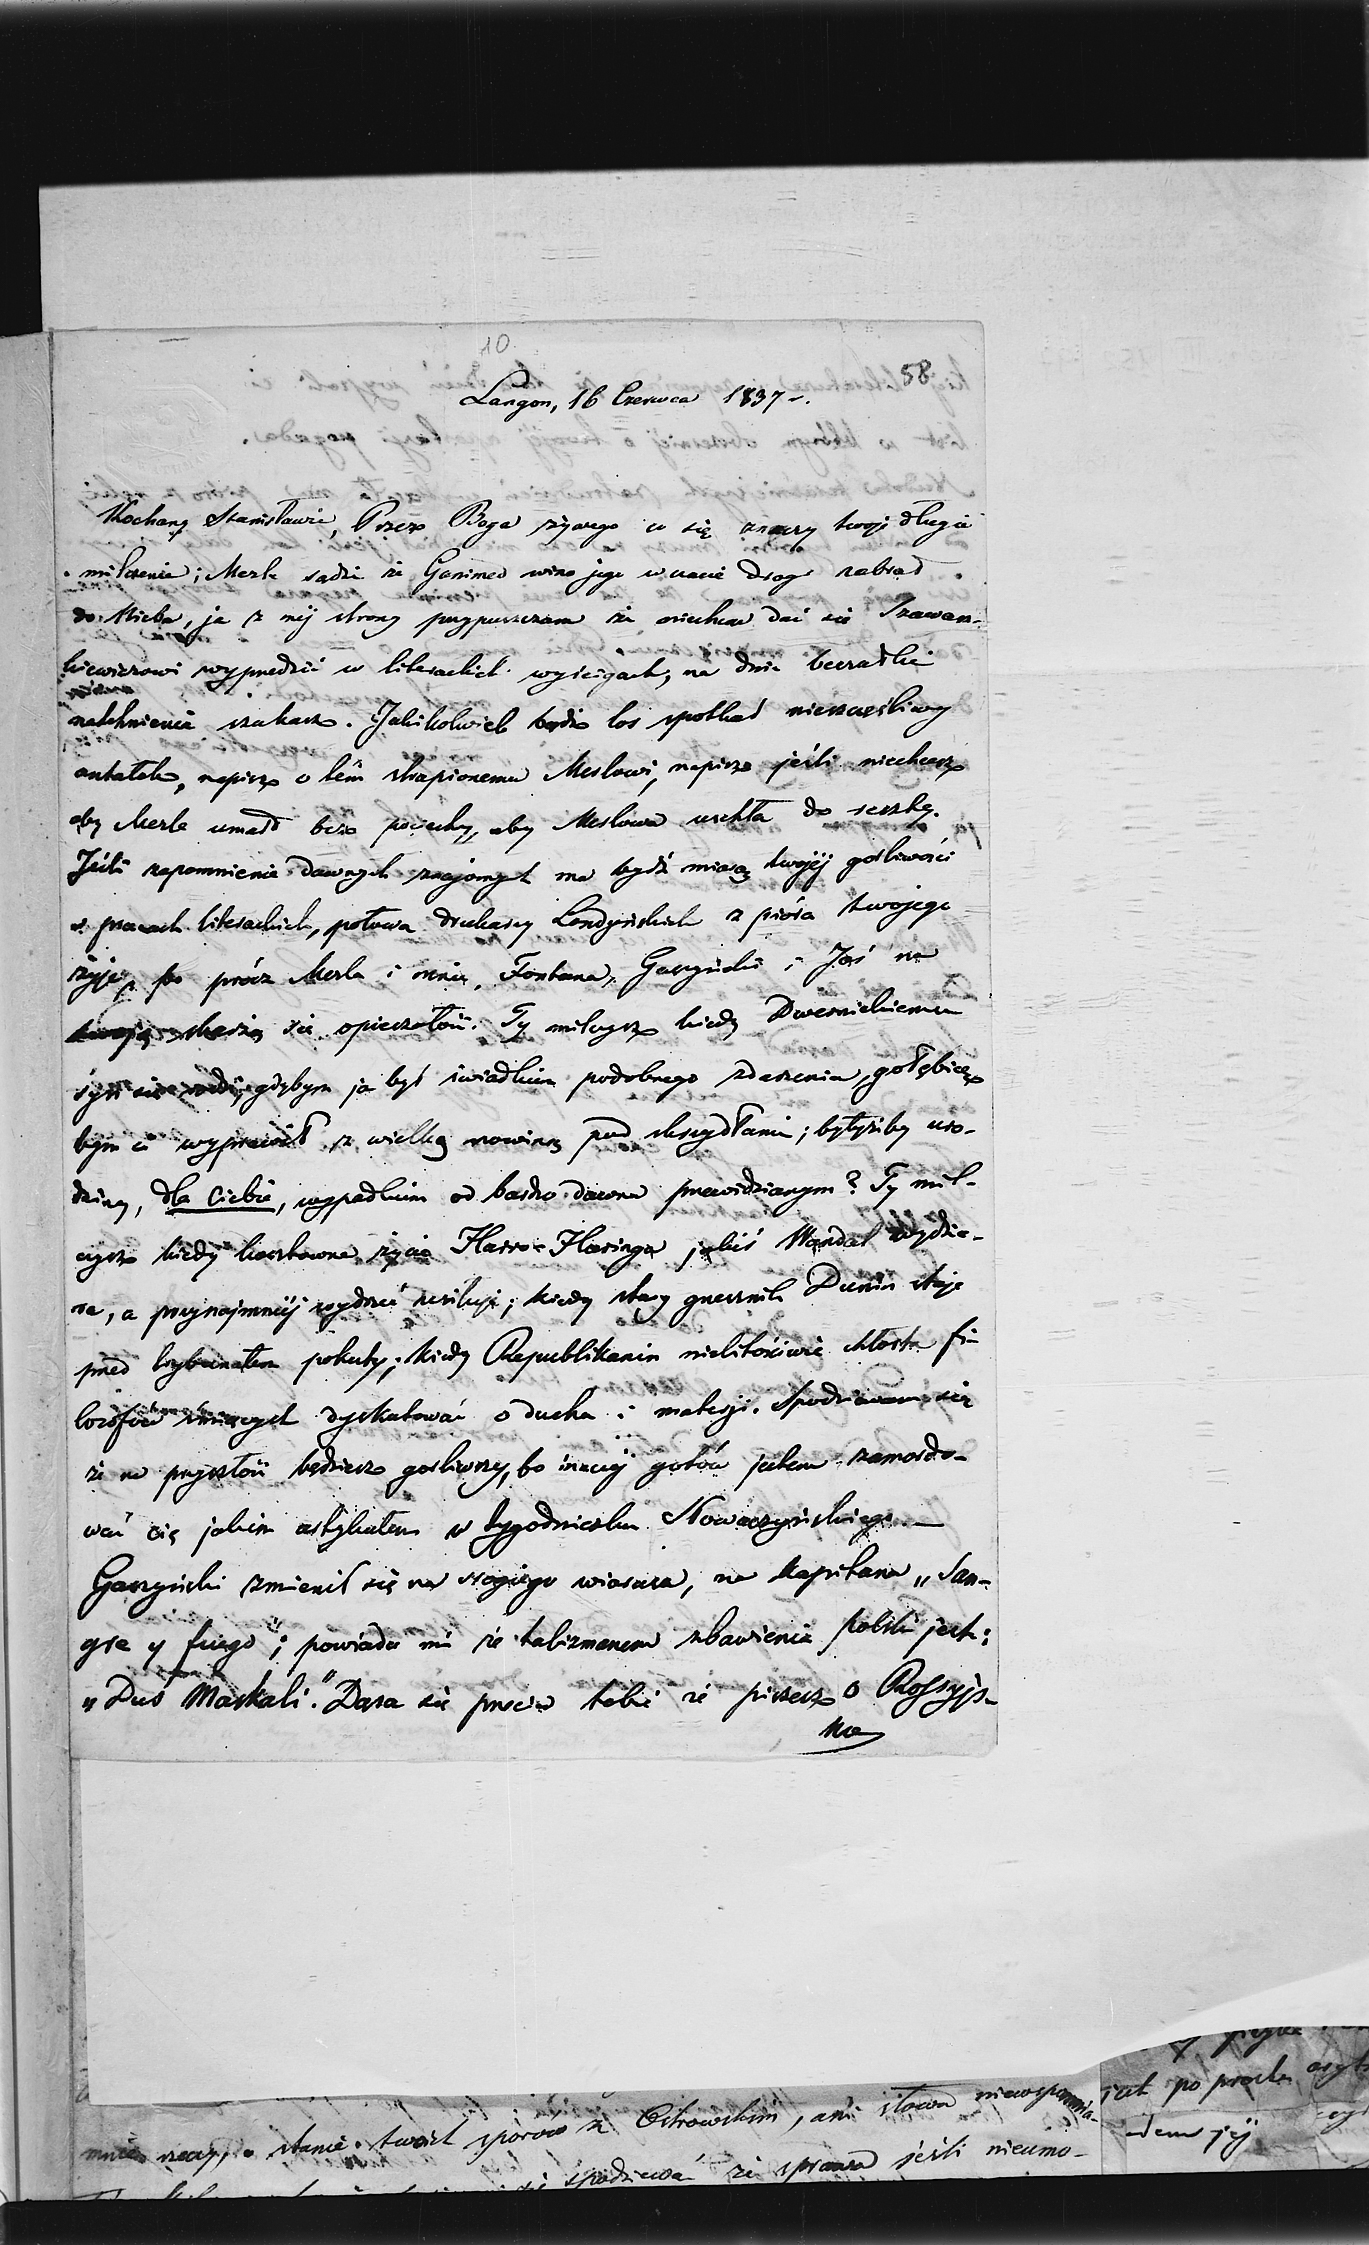 10
58
Langon, 16 Czerwca 1837.
Kochany Stanisławie, Przez Boga żywego co się znaczy twoje długie
milczenie; Merle sądzi że Ganimed wino jego w czasie drogi zabrał
do Nieba, ja z mej strony przypuszczam że niechcąc dać się Szawasz-
kiewiczowi wyprzedzić w literackich wyścigach, na dnie beczułki
natchnienia szukasz. Jakikolwiek bądź los spotkał nieszczęśliwy
antałek, napisz o tém strapionemu Merlowi, napisz jeśli niechcesz
aby Merle umarł bez pociechy, aby Merlowa uschła do reszty.
Jeśli zapomnienie dawnych znajomych ma bydź miarą twojéj gorliwości
w pracach literackich, połowa drukarzy Londyńskich z pióra twojego
żyje, bo prócz Merla i mnie, Fontana, Gaszyński i Jaś na
twoją skarżą się opieszałość. Ty milczysz kiedy Dwernickiemu
syn się rodzi, gdybym ja był świadkiem podobnego zdarzenia, gołębicę
bym ci wyprawił z wielką nowiną pod skrzydłami; byłyżby uro-
dziny, dla Ciebie, wypadkiem od bardzo dawna przewidzianym? Ty mil-
czysz kiedy kosztowne życie Harro-Haringa jakiś Wandal wydzie-
ra, a przynajmniéj wydrzeć usiłuje; kiedy stary grzesznik Dunin staje
przed trybunałem pokuty; kiedy Republikanin nielitościwie chłosta fi-
lozofów śmiących dyskutować o duchu i materji. Spodziewam się
że na przyszłość będziesz gorliwszy, bo inaczéj gotów jestem zamordo-
wać cię jakim artykułem w tygodniczku Nowaczyńskiego. —
Gaszyński zmienił się na srogiego wiarusa, na kapitana „San-
gre y fuego"; powiada mi że talizmanem zbawienia polski jest:
„Duś Moskali." Dąsa się przeciw tobie że piszesz o Rossyjs-
kie
mnie rzeczy, o stanie twoich sporów z Ostrowskim, ani słowa niewspomnia-
spodziewać że sprawa jeśli nieumo-
jest po prostu
-dem jéj